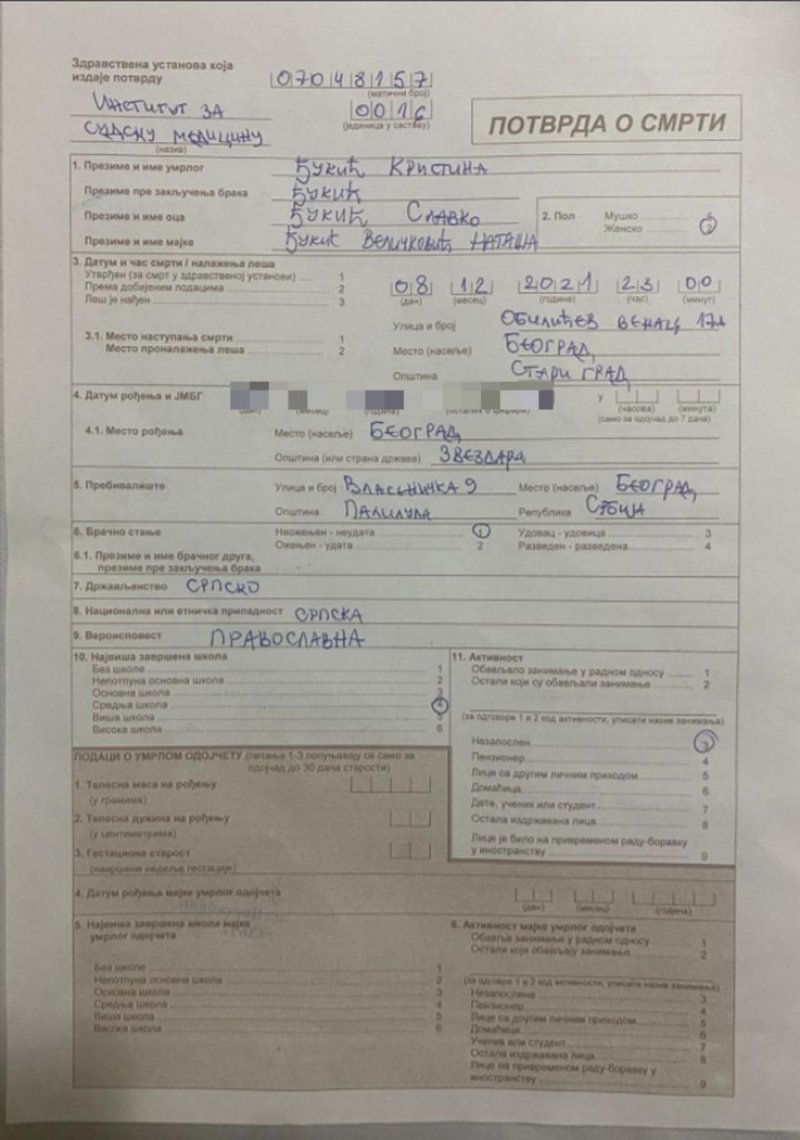 Здравствена установа која
издаје потврду
07048157
(матични број)
Институт за
0016
(јединица у саставу)
судску медицину
(назив)
ПОТВРДА О СМРТИ
1. Презиме и име умрлог Ђукић Кристина
Презиме пре закључења брака Ђукић
Презиме и име оца Ђукић Славко
Презиме и име мајке Ђукић Величковић Наташа
2. Пол Мушко
Женско 2
3. Датум и час смрти / налажења леша
Утврђен (за смрт у здравственој установи) 1
Према добијеним подацима 2
Леш је нађен 3
08 12 2021 23 00
(дан) (месец) (година) (час) (минут)
Улица и број Обилићев венац 17А
3.1. Место наступања смрти 1
Место проналажења леша 2
Место (насеље) Београд
Општина Стари град
4. Датум рођења и ЈМБГ
у
(часова) (минута)
(само за одојчад до 7 дана)
4.1. Место рођења Место (насеље) Београд
Општина (или страна држава) Звездара
5. Пребивалиште Улица и број Власењичка 9 Место (насеље) Београд
Општина Палилула Република Србија
6. Брачно стање Неожењен - неудата 1 Удовац - удовица 3
Ожењен - удата 2 Разведен - разведена 4
6.1. Презиме и име брачног друга,
презиме пре закључења брака
7. Држављанство Српско
8. Национална или етничка припадност Српска
9. Вероисповест Православна
10. Највиша завршена школа
Без школе 1
Непотпуна основна школа 2
Основна школа 3
Средња школа 4
Виша школа 5
Висока школа 6
11. Активност
Обављало занимање у радном односу 1
Остали који су обављали занимање 2
(за одговоре 1 и 2 код активности, уписати назив занимања)
Незапослен 3
Пензионер 4
Лице са другим личним приходом 5
Домаћица 6
Дете, ученик или студент 7
Остала издржавана лица 8
Лице је било на привременом раду-боравку
у иностранству 9
ПОДАЦИ О УМРЛОМ ОДОЈЧЕТУ (питања 1-3 попуњавају се само за
одојчад до 30 дана старости)
1. Телесна маса на рођењу
(у грамима)
2. Телесна дужина на рођењу
(у центиметрима)
3. Гестациона старост
(навршене недеље гестације)
4. Датум рођења мајке умрлог одојчета
(дан) (месец) (година)
5. Највиша завршена школа мајке
умрлог одојчета
Без школе 1
Непотпуна основна школа 2
Основна школа 3
Средња школа 4
Виша школа 5
Висока школа 6
6. Активност мајке умрлог одојчета
Обавља занимање у радном односу 1
Остали који обављају занимање 2
(за одговоре 1 и 2 код активности, уписати назив занимања)
Незапослена 3
Пензионер 4
Лице са другим личним приходом 5
Домаћица 6
Ученик или студент 7
Остала издржавана лица 8
Лице на привременом раду-боравку у
иностранству 9